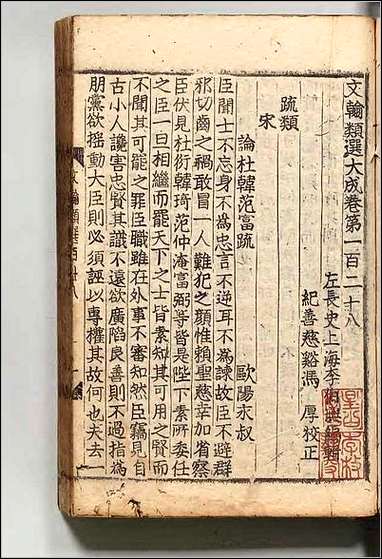 文翰類選大成卷第一百二十八
左長史上海李伯璵編輯
紀善慈谿馮厚校正
疏類
宋
論杜韓范富疏 歐陽永叔
臣聞士不忘身不為忠言不逆耳不為諫故臣不避群
邪切齒之禍敢冒一人難犯之顏惟賴聖慈幸加省察
臣伏見杜衍韓琦范仲淹富弼等皆是陛下素所委任
之臣一旦相繼而罷天下之士皆素知其可用之賢而
不聞其可罷之罪臣職雖在外事不審知然臣竊見自
古小人讒害忠賢其識不遠欲廣陷良善則不過指為
朋黨欲搖動大臣則必須誣以專權其故何也夫去一